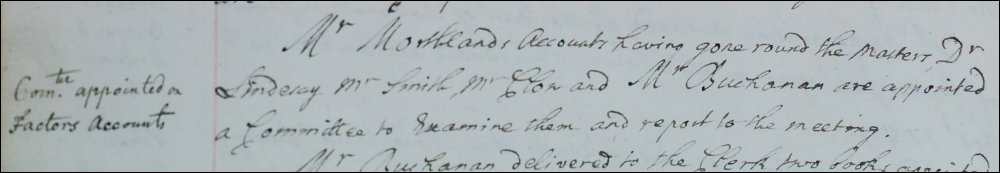 Mr Morthlands Accounts having gone round the Masters, Dr
Comtee. appointed on
Lindesay Mr Smith Mr Clow and Mr Buchanan are appointed
Factors Accounts
a Committee to Examine them and report to the meeting.
Mr Buchanan delivered to the Clerk two books